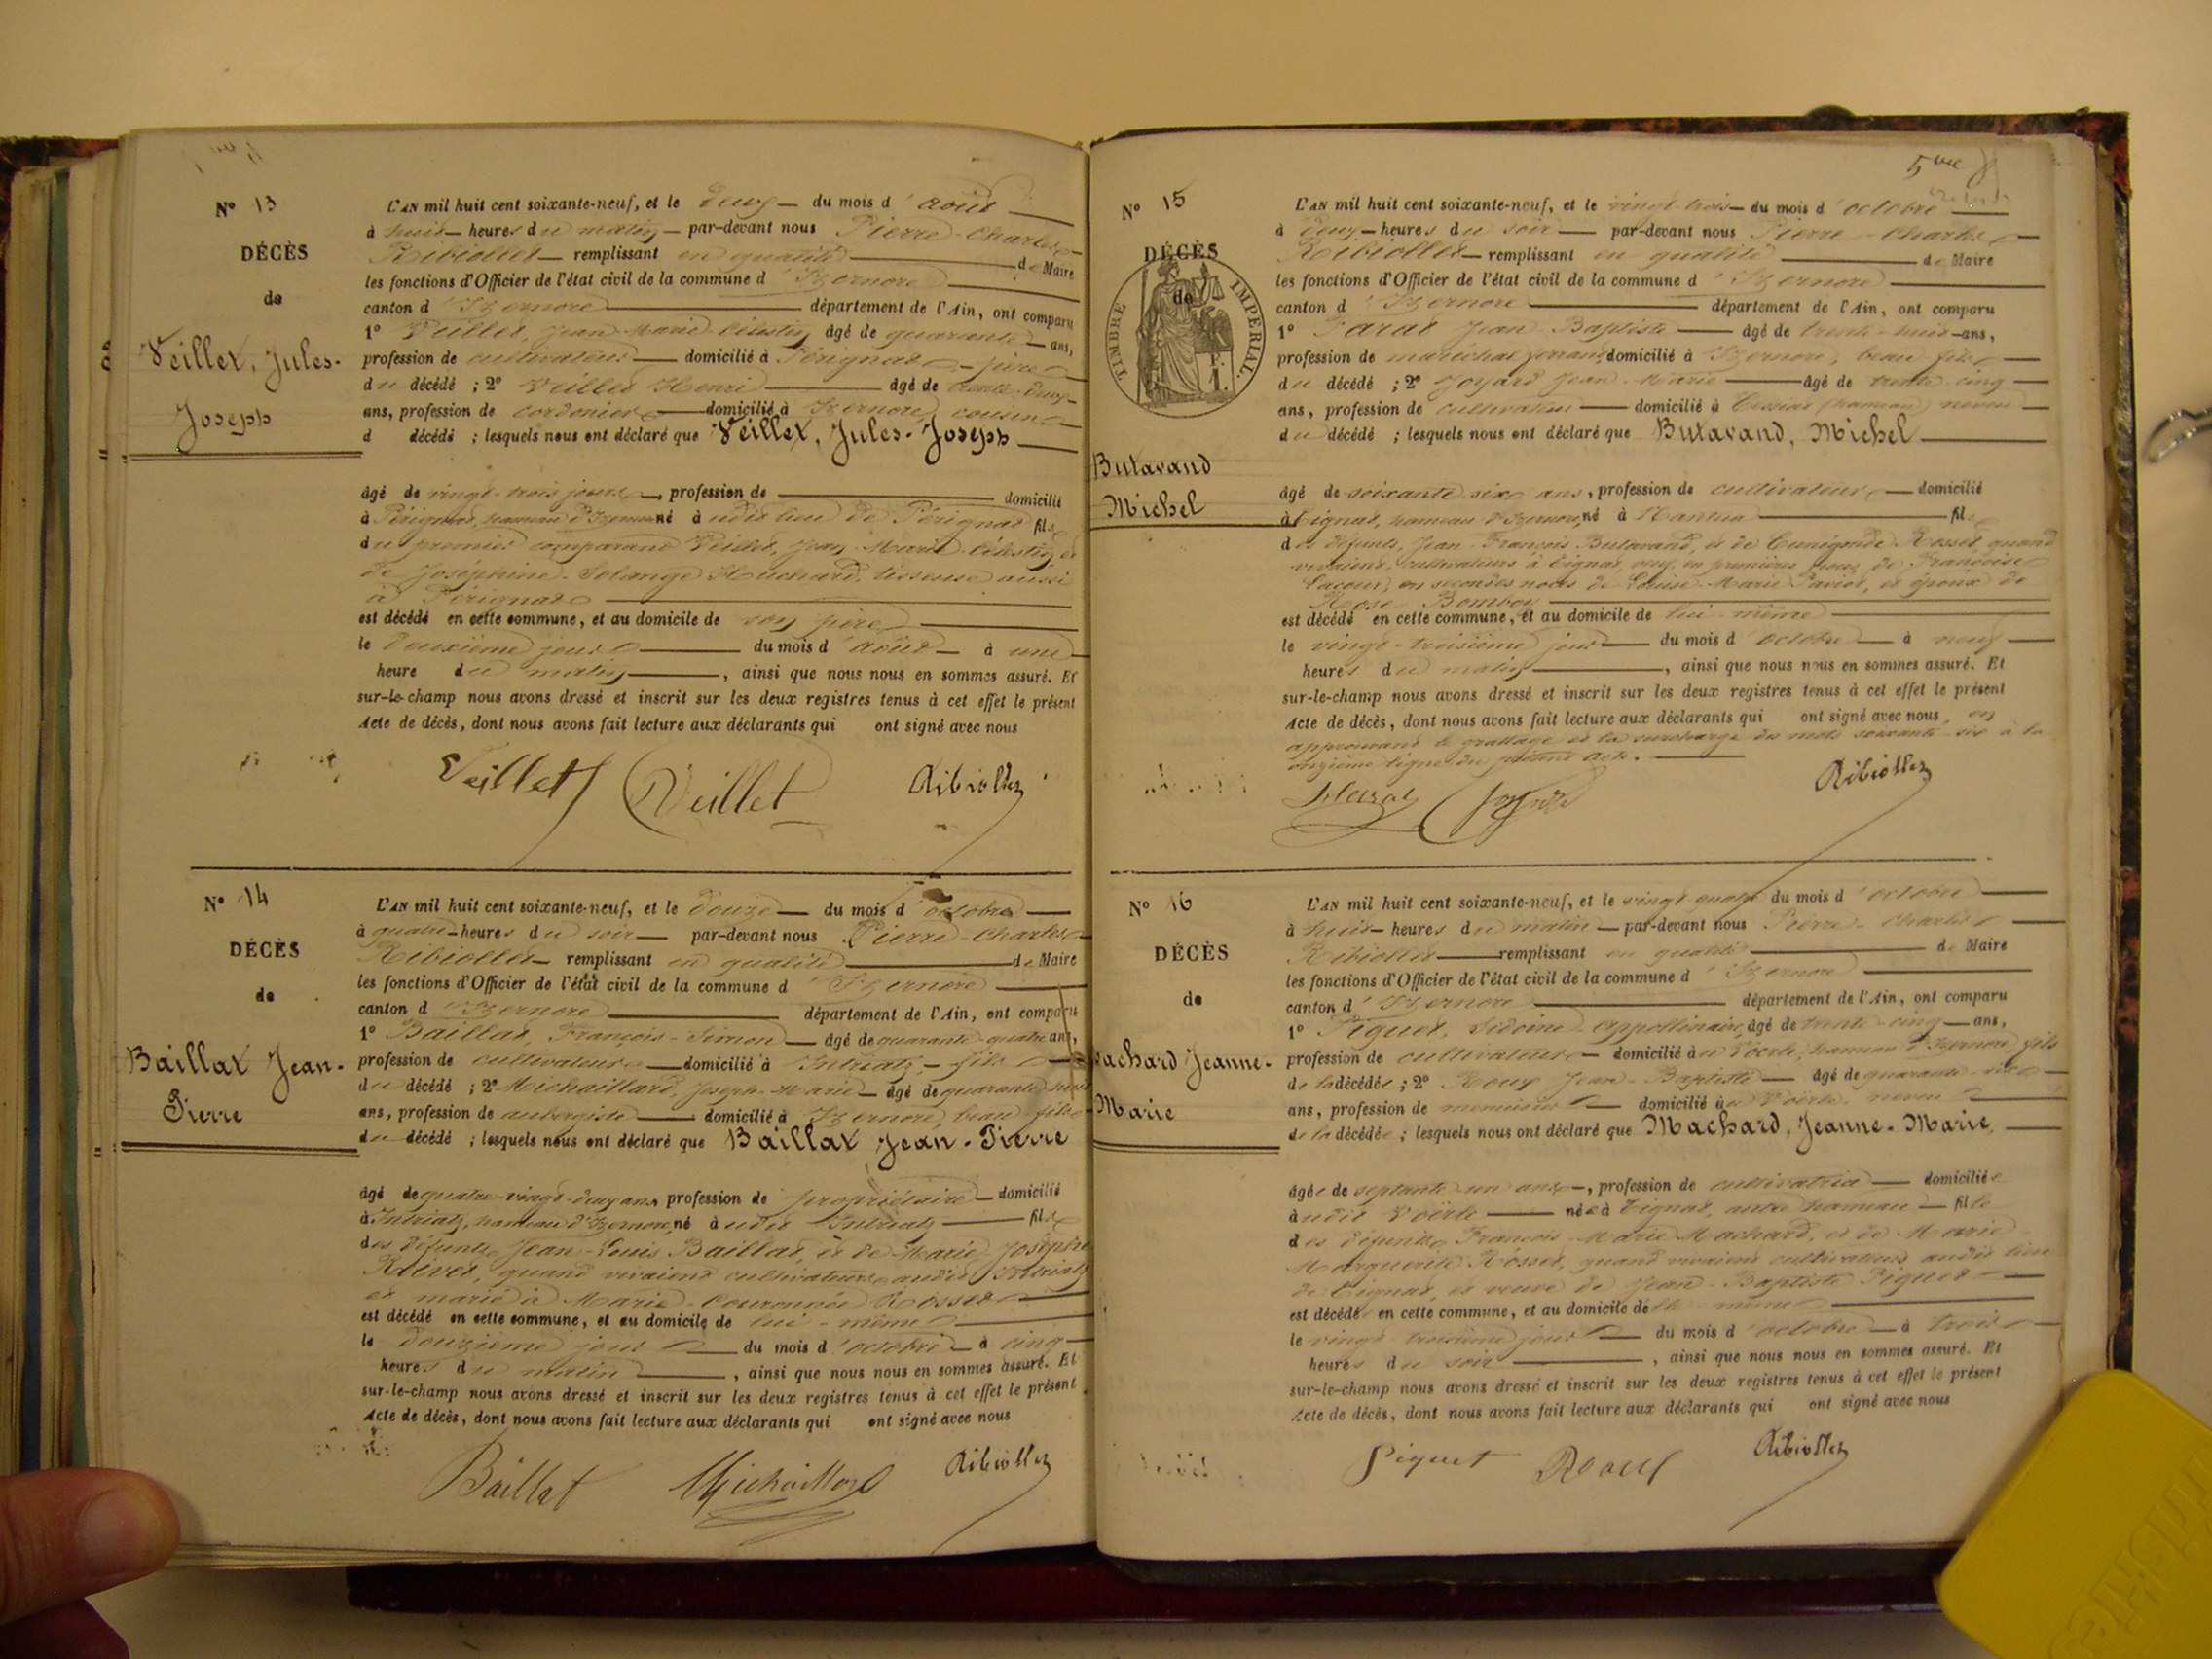 N° 13
DÉCÈS
de
Veillet, Jules-
Joseph
L'AN mil huit cent soixante-neuf, et le deux du mois d'août
à huit heures du matin par-devant nous Pierre-Charles
Ribiollet remplissant en qualité de Maire
les fonctions d'Officier de l'état civil de la commune d'Izernore
canton d'Izernore département de l'Ain, ont comparu
1° Veillet, Jean-Marie-Célestin âgé de quarante ans,
profession de cultivateur domicilié à Pérignat, père
du décédé ; 2° Veillet Henri âgé de trente-deux
ans, profession de cordonier domicilié à Izernore, cousin
d décédé ; lesquels nous ont déclaré que Veillet, Jules-Joseph
âgé de vingt-trois jours, profession de domicilié
à Pérignat, hameau d'Izernore né à udit lieu de Pérignat fils
du premier comparant Veillet, Jean-Marie-Célestin, et
de Joséphine-Solange Huchard, tisseuse aussi
à Pérignat
est décédé en cette commune, et au domicile de son père
le deuxième jour du mois d'août à une
heure du matin, ainsi que nous nous en sommes assuré. Et
sur-le-champ nous avons dressé et inscrit sur les deux registres tenus à cet effet le présent
Acte de décès, dont nous avons fait lecture aux déclarants qui ont signé avec nous
Veillet Veillet Ribiollet
N° 14
DÉCÈS
de
Baillat Jean-
Pierre
L'AN mil huit cent soixante-neuf, et le douze du mois d'octobre
à quatre heures du soir par-devant nous Pierre-Charles
Ribiollet remplissant en qualité de Maire
les fonctions d'Officier de l'état civil de la commune d'Izernore
canton d'Izernore département de l'Ain, ont comparu
1° Baillat, François-Simon âgé de quarante-quatre ans,
profession de cultivateur domicilié à Intriatz, fils
du décédé ; 2° Michaillard, Joseph-Marie âgé de quarante
ans, profession de aubergiste domicilié à Izernore, beau-fils
du décédé ; lesquels nous ont déclaré que Baillat Jean-Pierre
âgé de quatre-vingt-deux ans profession de propriétaire domicilié
à Intriatz, hameau d'Izernore, né à udit Intriatz fils
des défunts Jean-Louis Baillat, et de Marie-Josephte
quand vivaient cultivateurs audit Intriatz
et marié à Marie-Couronnée Rosset
est décédé en cette commune, et au domicile de lui-même
le douzième jour du mois d'octobre à cinq
heures du matin, ainsi que nous nous en sommes assuré. Et
sur-le-champ nous avons dressé et inscrit sur les deux registres tenus à cet effet le présent
Acte de décès, dont nous avons fait lecture aux déclarants qui ont signé avec nous
Baillat Michaillard Ribiollet
5me
N° 15
DÉCÈS
de
TIMBRE IMPÉRIAL
Butavand
Michel
L'AN mil huit cent soixante-neuf, et le vingt-trois du mois d'octobre
à deux heures du soir par-devant nous Pierre-Charles
Ribiollet remplissant en qualité de Maire
les fonctions d'Officier de l'état civil de la commune d'Izernore
canton d'Izernore département de l'Ain, ont comparu
1° Jean-Baptiste âgé de trente-huit ans,
profession de maréchal ferrant domicilié à Izernore, beau-fils
du décédé ; 2° Joyard Jean-Marie âgé de trente-cinq
ans, profession de cultivateur domicilié à Cessiat (hameau) neveu
du décédé ; lesquels nous ont déclaré que Butavand, Michel
âgé de soixante-six ans, profession de cultivateur domicilié
à Tignat, hameau d'Izernore, né à Nantua fils
des défunts, Jean-François Butavand, et de Cunégonde Rosset quand
vivaient, cultivateurs à Tignat, veuf en premières noces de Françoise
en secondes noces de Louise-Marie et époux de
Rose Bomboy
est décédé en cette commune, et au domicile de lui-même
le vingt-troisième jour du mois d'octobre à neuf
heures du matin, ainsi que nous nous en sommes assuré. Et
sur-le-champ nous avons dressé et inscrit sur les deux registres tenus à cet effet le présent
Acte de décès, dont nous avons fait lecture aux déclarants qui ont signé avec nous, en
approuvant le grattage et la surcharge des mots soixante-six à la
onzième ligne du présent acte.
Ribiollet
N° 16
DÉCÈS
de
Machard Jeanne-
Marie
L'AN mil huit cent soixante-neuf, et le vingt-quatre du mois d'octobre
à huit heures du matin par-devant nous Pierre-Charles
Ribiollet remplissant en qualité de Maire
les fonctions d'Officier de l'état civil de la commune d'Izernore
canton d'Izernore département de l'Ain, ont comparu
1° Piquet, Sidoine-Appollinaire, âgé de trente-cinq ans,
profession de cultivateur domicilié au Voërle, hameau d'Izernore, fils
de la décédée ; 2° Roux Jean-Baptiste âgé de quarante-
ans, profession de menuisier domicilié au Voërle, neveu
de la décédée ; lesquels nous ont déclaré que Machard, Jeanne-Marie
âgée de septante-un ans, profession de cultivatrice domiciliée
à udit Voërle née à Tignat, autre hameau fille
des défunts François-Marie Machard, et de Marie
Marguerite Rosset, quand vivaient cultivateurs audit lieu
de Tignat, et veuve de Jean-Baptiste Piquet
est décédée en cette commune, et au domicile d'elle-même
le vingt-troisième jour du mois d'octobre à trois
heures du soir, ainsi que nous nous en sommes assuré. Et
sur-le-champ nous avons dressé et inscrit sur les deux registres tenus à cet effet le présent
Acte de décès, dont nous avons fait lecture aux déclarants qui ont signé avec nous
Piquet Roux Ribiollet